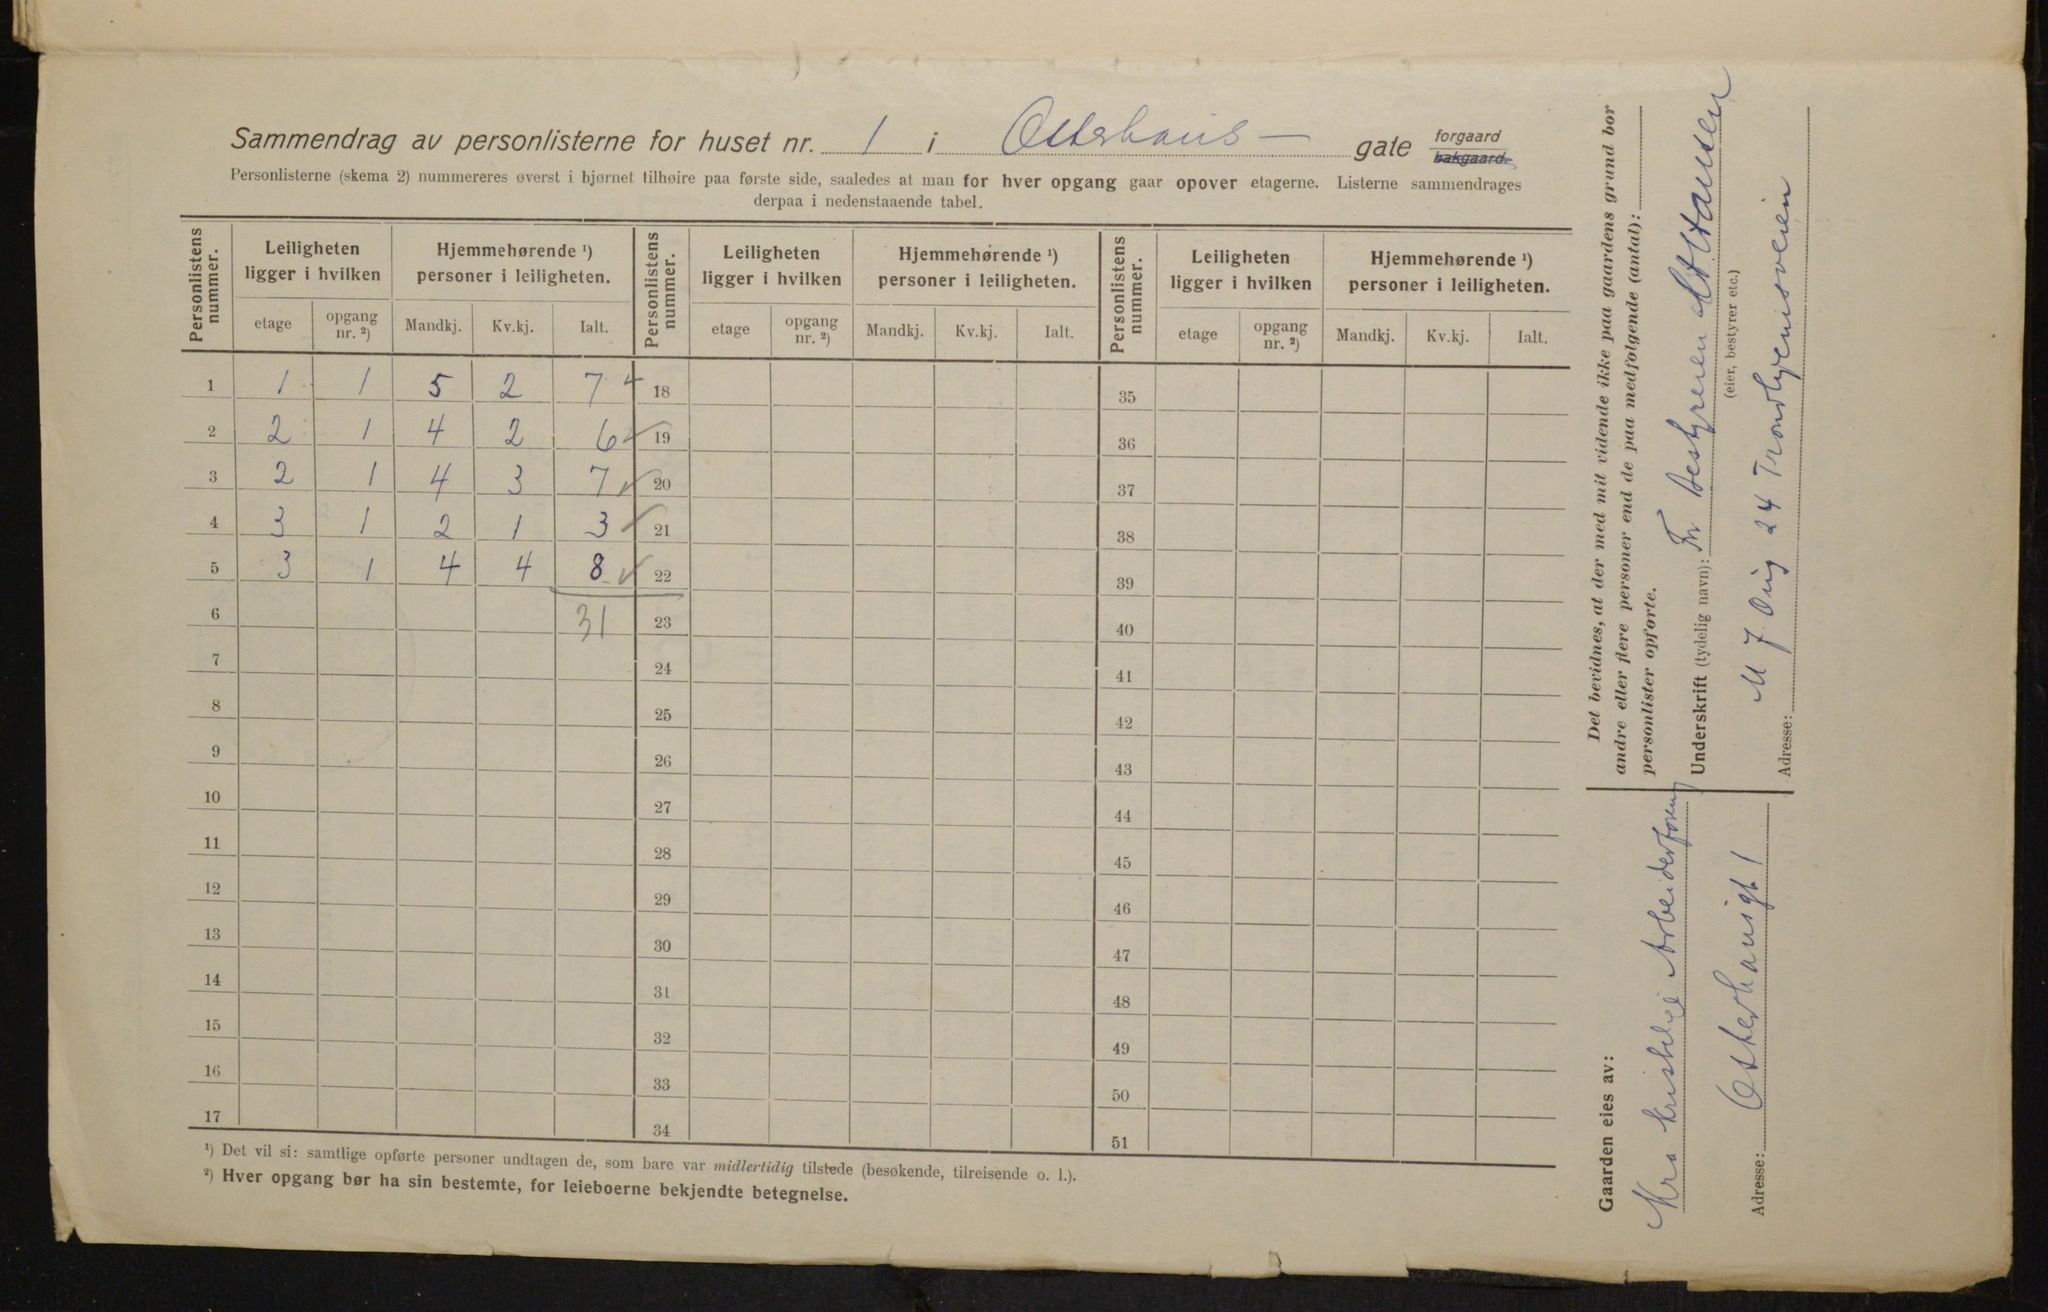 Sammendrag av personlisterne for huset nr. 1 i Osterhaus- gate forgaard bakgaard.
Personlisterne (skema 2) nummereres øverst i hjørnet tilhøire paa første side, saaledes at man for hver opgang gaar opover etagerne. Listerne sammendrages
derpaa i nedenstaaende tabel.
Personlistens nummer. Leiligheten ligger i hvilken Hjemmehørende ¹) personer i leiligheten. Personlistens nummer. Leiligheten ligger i hvilken Hjemmehørende ¹) personer i leiligheten. Personlistens nummer. Leiligheten ligger i hvilken Hjemmehørende ¹) personer i leiligheten.
etage opgang nr. ²) Mandkj. Kv.kj. Ialt. etage opgang nr. ²) Mandkj. Kv.kj. Ialt. etage opgang nr. ²) Mandkj. Kv.kj. Ialt.
1 1 1 5 2 7 18 35
2 2 1 4 2 6 19 36
3 2 1 4 3 7 20 37
4 3 1 2 1 3 21 38
5 3 1 4 4 8 22 39
6 31 23 40
7 24 41
8 25 42
9 26 43
10 27 44
11 28 45
12 29 46
13 30 47
14 31 48
15 32 49
16 33 50
17 34 51
¹) Det vil si: samtlige opførte personer undtagen de, som bare var midlertidig tilstede (besøkende, tilreisende o. l.).
²) Hver opgang bør ha sin bestemte, for leieboerne bekjendte betegnelse.
Det bevidnes, at der med mit vidende ikke paa gaardens grund bor
andre eller flere personer end de paa medfølgende (antal):
personlister opførte.
Underskrift (tydelig navn): For Bestyreren Hansen
(eier, bestyrer etc.)
Adresse: 24 Trondhjemsveien
Gaarden eies av:
Kra kristelige Arbeiderforening
Adresse: Osterhausgt 1